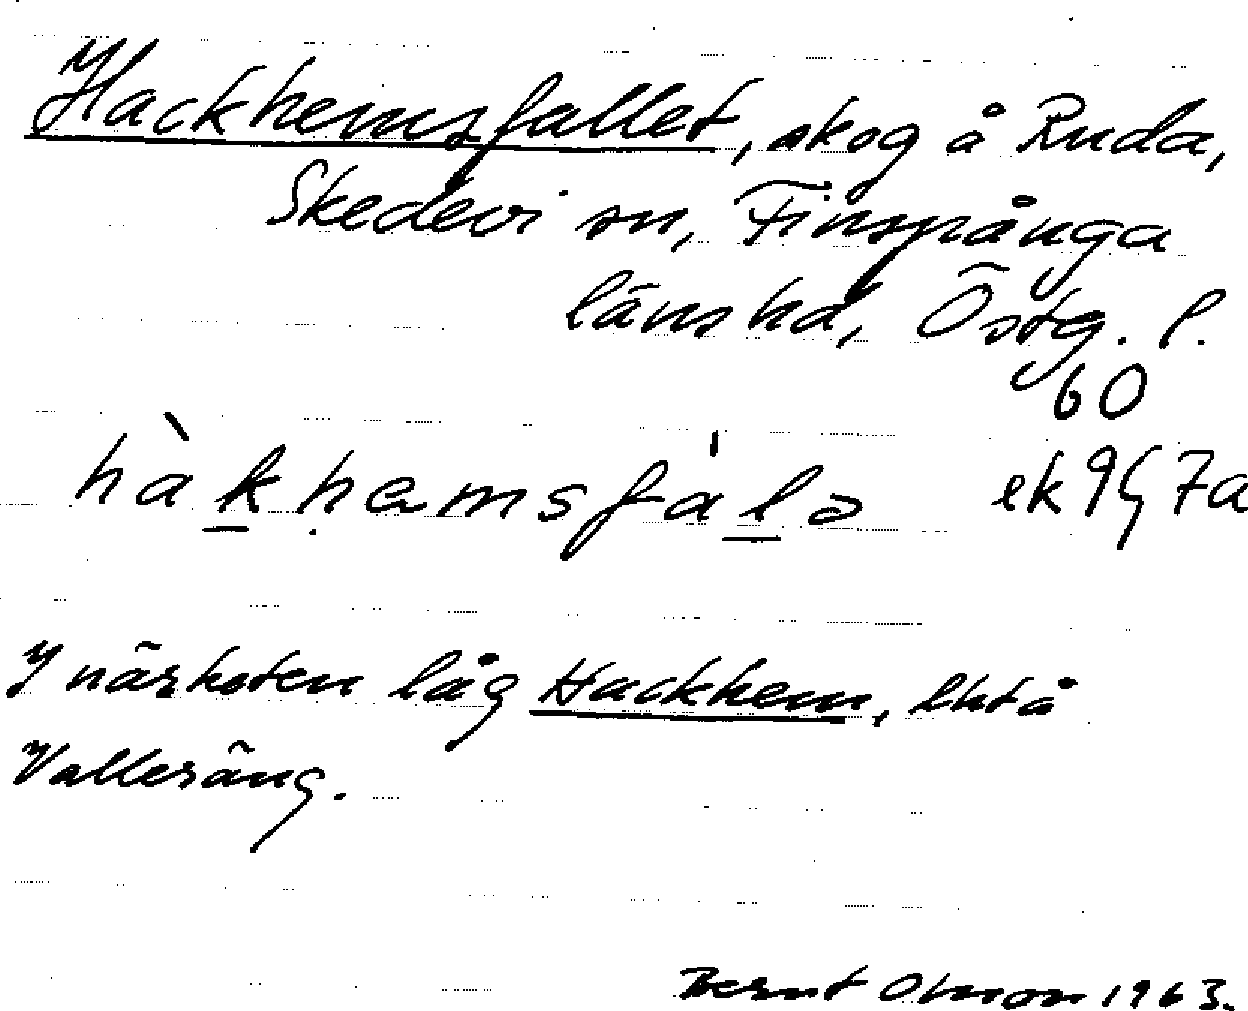 Hackhemsfallet, skog å Ruda,
Skedevi sn, Finspånga
länshd, Östg. l.
60
hàkhemsfàlə ek 9G 7a
I närheten låg Hackhem, lht å
Valleräng.
Bernt Olsson 1963.